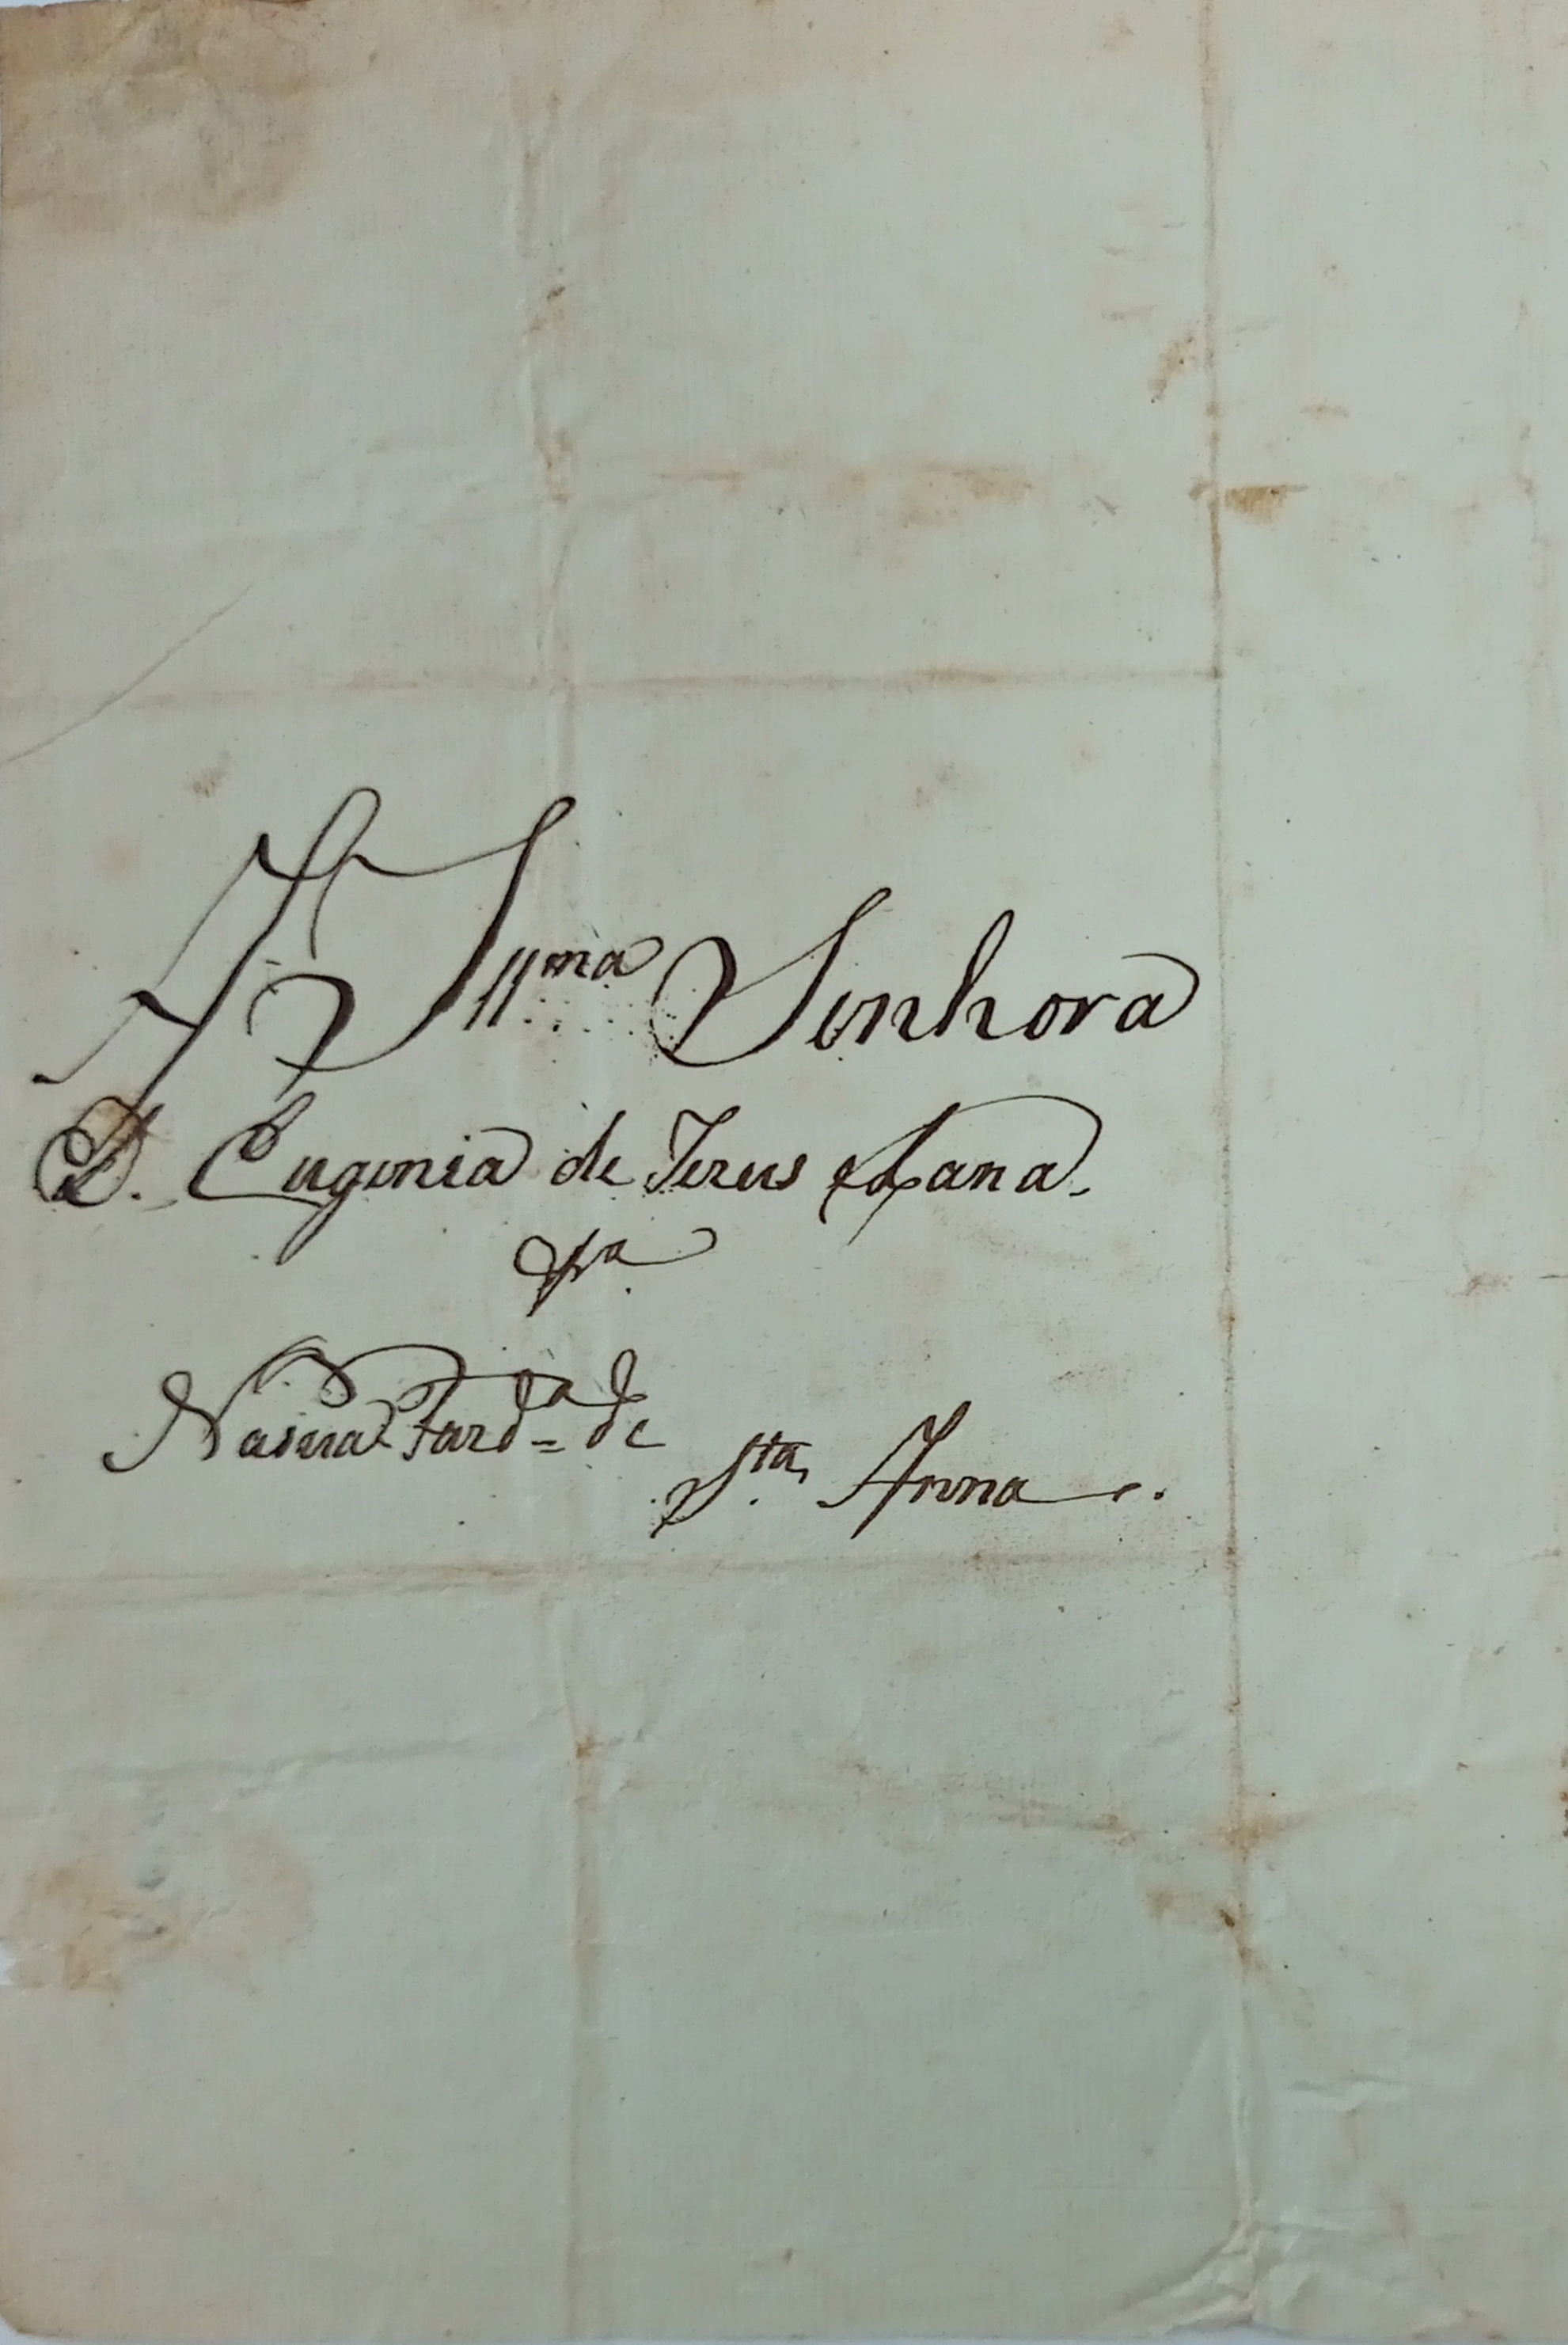 A Illma Senhora
D. Eugenia de Jezus
Sra
Fazda de
Sta Anna